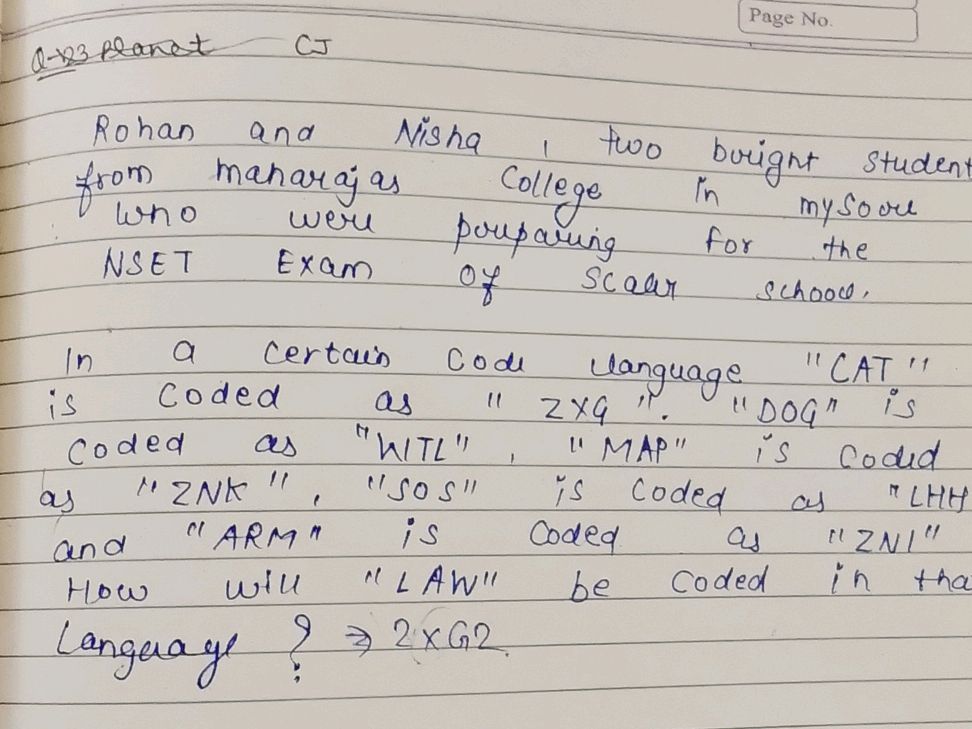 Page No.
Q-123 Planet CJ
Rohan and Nisha, two bright student
from maharajas College in mysore
who were preparing for the
NSET Exam of Scaler school.
In a certain Code language "CAT"
is Coded as "ZXG". "DOG" is
Coded as "WTL", "MAP" is Coded
as "ZNK", "SOS" is Coded as "LHH
and "ARM" is Coded as "ZNI"
How will "LAW" be Coded in tha
Language ? ⇒ 2xG2